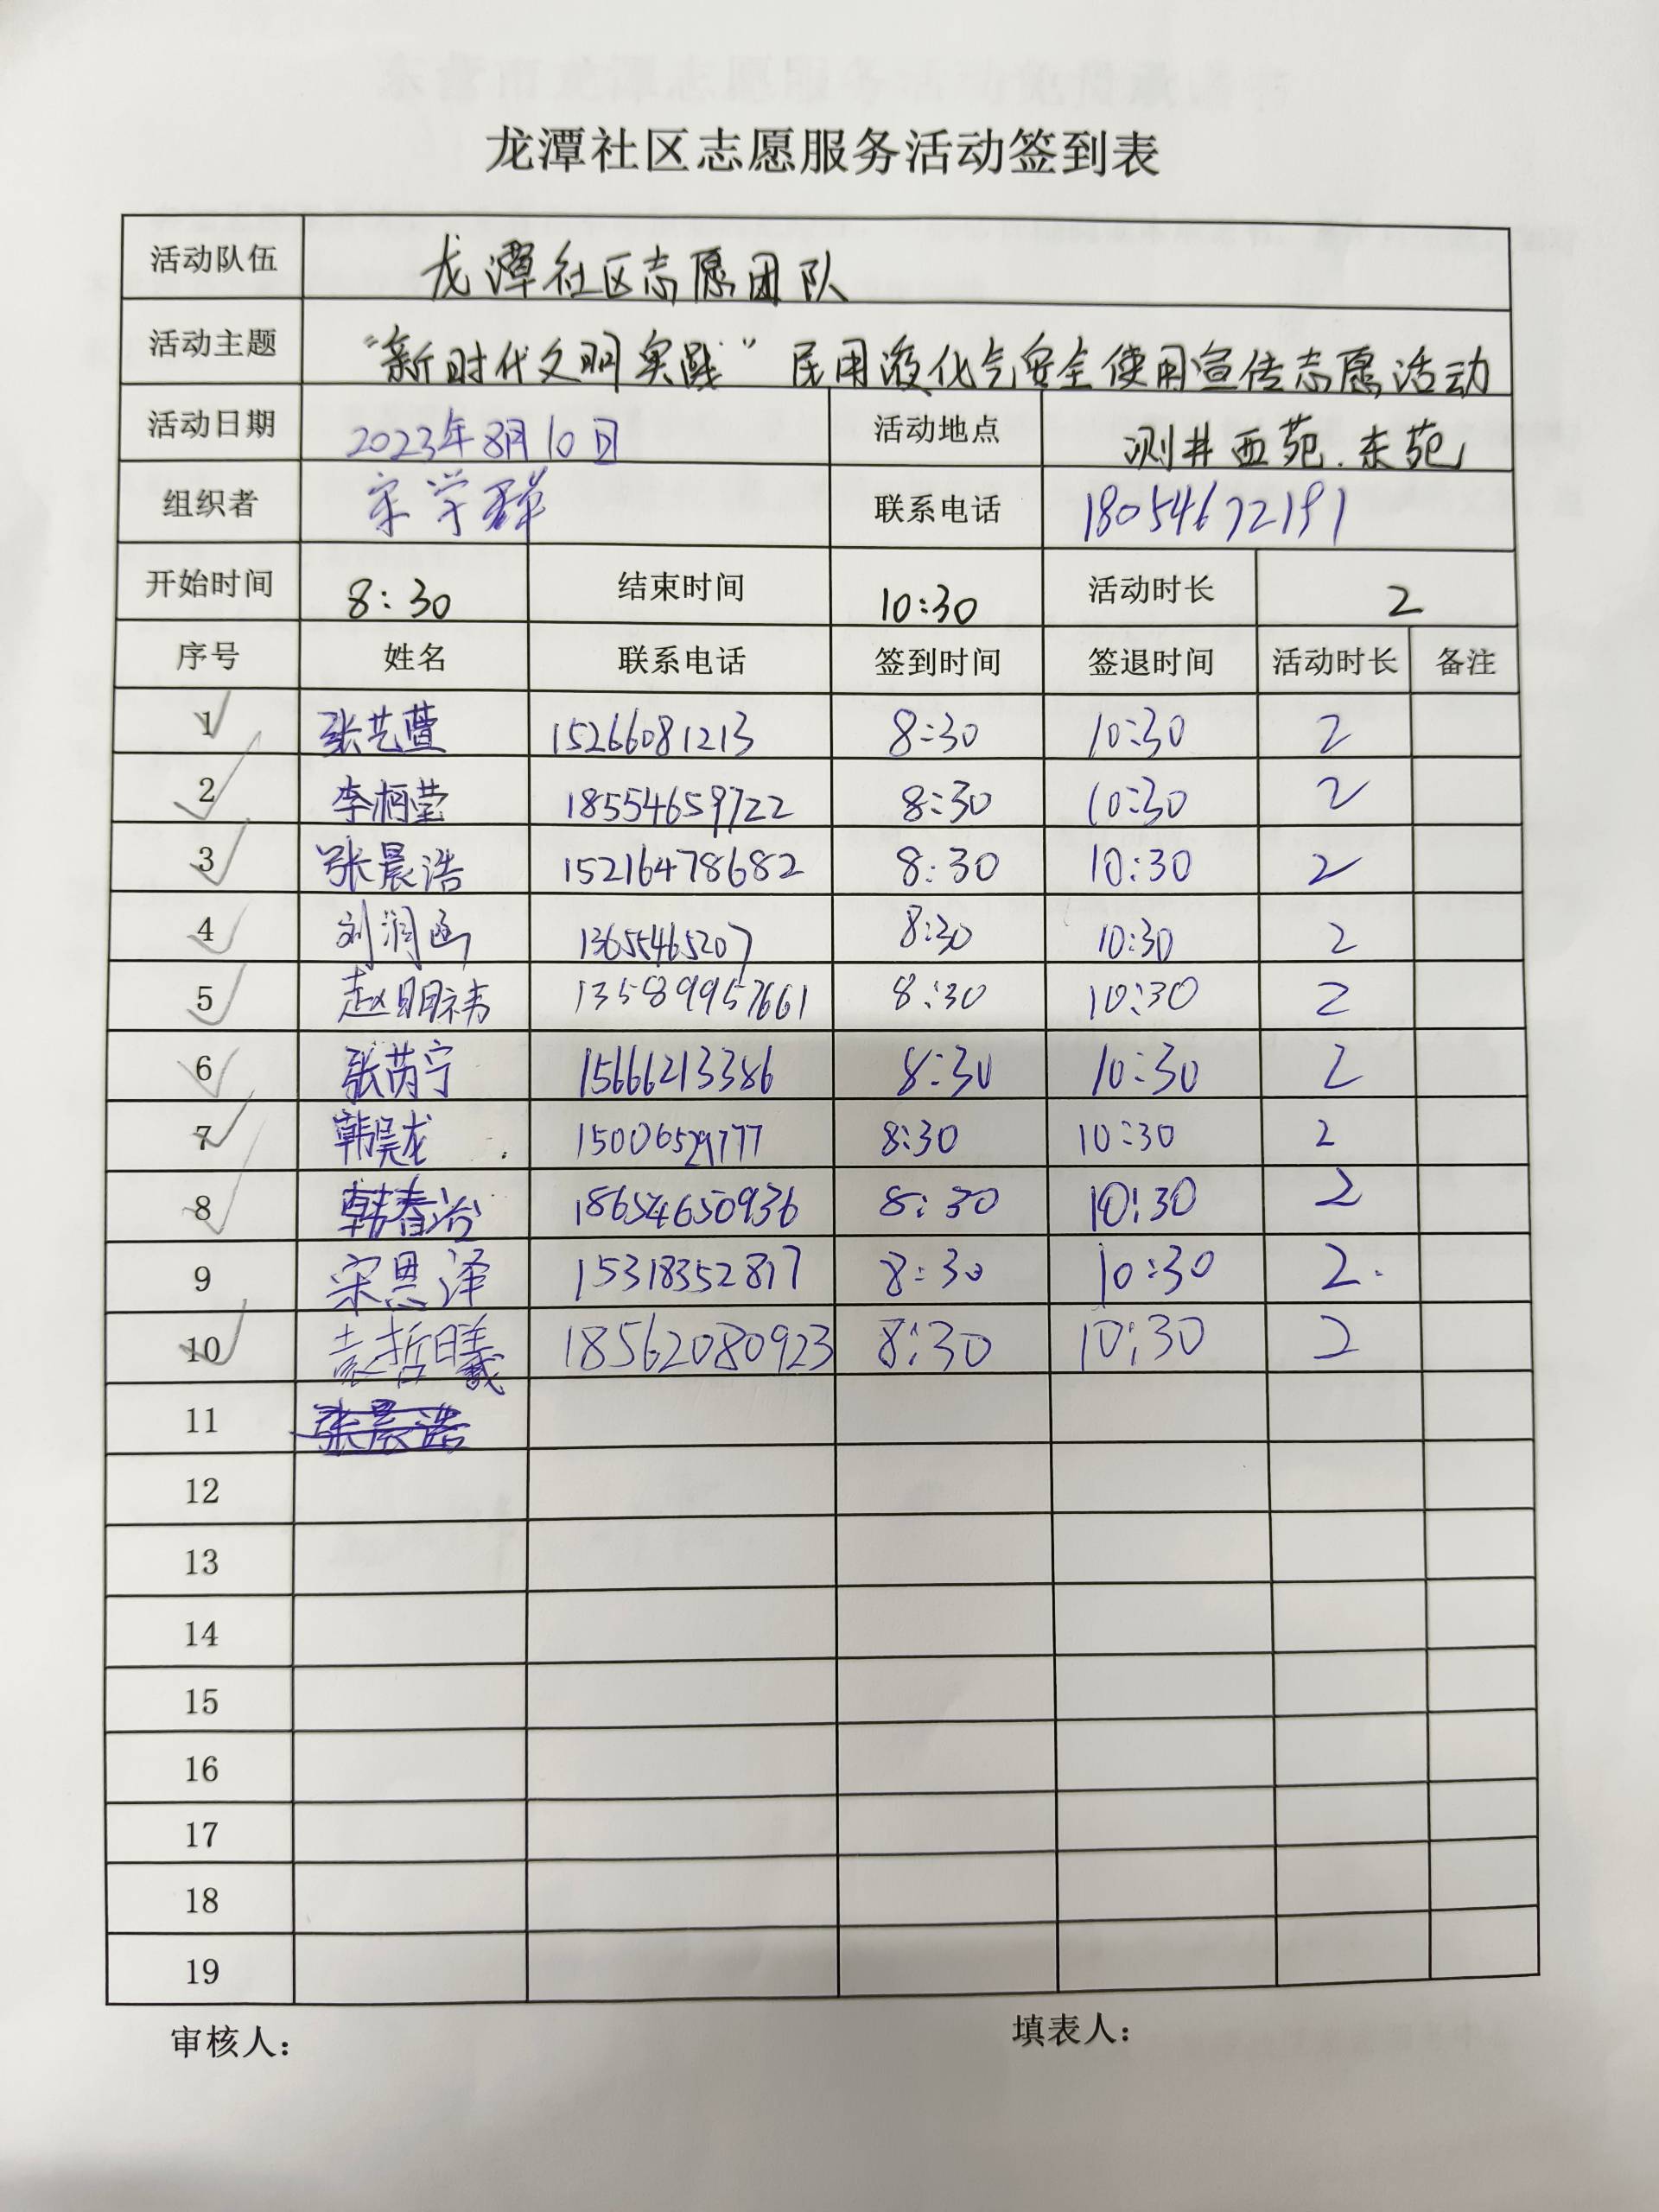 龙潭社区志愿服务活动签到表
活动队伍 龙潭社区志愿团队
活动主题 "新时代文明实践"民用液化气安全使用宣传志愿活动
活动日期 2023年8月10日 活动地点 测井西苑.东苑
组织者 宋学群 联系电话 18054672191
开始时间 8:30 结束时间 10:30 活动时长 2
序号 姓名 联系电话 签到时间 签退时间 活动时长 备注
1 张艺萱 15266081213 8:30 10:30 2
2 李栖莹 18554659722 8:30 10:30 2
3 张晨浩 15216478682 8:30 10:30 2
4 刘润函 13655465207 8:30 10:30 2
5 赵明祎 13589957661 8:30 10:30 2
6 张芮宁 15666213386 8:30 10:30 2
7 韩昊龙 15006529777 8:30 10:30 2
8 韩春冶 18654650936 8:30 10:30 2
9 宋思泽 15318352817 8:30 10:30 2
10 袁哲曦 18562080923 8:30 10:30 2
11 张晨浩
12
13
14
15
16
17
18
19
审核人： 填表人：